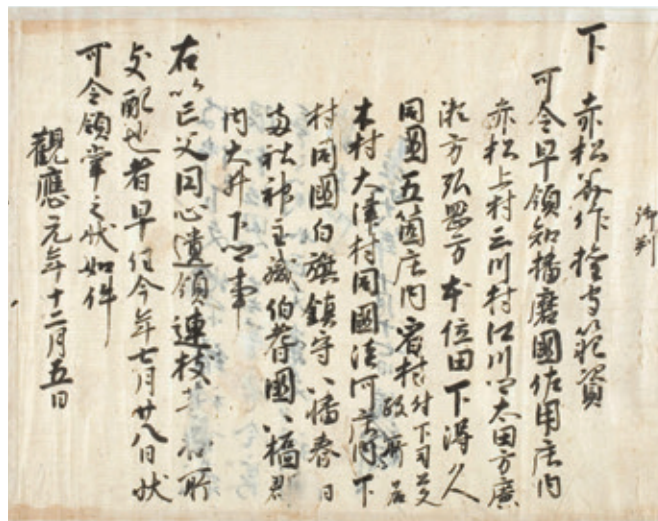 御判
下 赤松美作権守範資
可令早領知播磨國佐用庄内
赤松上村三川村江川郷太田方廣
瀬方弘岡方本位田下得久
同國五箇庄内宿村付下司公文
政所名
本村大津村同國淡河庄内下
村同國白旗鎮守八幡春日
両社神主職伯耆國八橋郡
内大井下郷事
右以亡父円心遺領連枝等所
支配也者早任今年七月廿八日状
可令領掌之状如件
觀應元年十二月五日